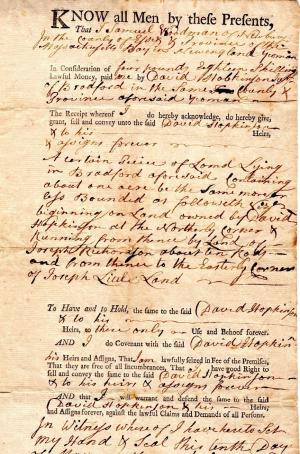 KNOW all Men by these Presents,
That I Samuel Woodman of Newbury
in the County of Essex & Province of the
Massachusetts Bay in New england Yeoman
In Consideration of four pounds Eighteen Shillings
Lawful Money, paid me by David Hopkinson
of Bradford in the Same County &
Province aforesaid yeoman
The Receipt whereof I do hereby acknowledge, do hereby give,
grant, sell and convey unto the said David Hopkinson
& to his Heirs,
& assigns forever
A certain Peice of Land Lying
in Bradford aforesaid Containing
about one acre be the Same more or
less Bounded as followeth viz
beginning on Land owned by David
Hopkinson at the Northerly Corner &
Running from thence by Land of
Joseph about ten Rods
and from thence to the Easterly Corner
of Joseph Land
To Have and to Hold, the same to the said David Hopkinson
& to his
Heirs, to there only Use and Behoof forever.
AND I do Covenant with the said David Hopkinson
his Heirs and Assigns, That I am lawfully seized in Fee of the Premises,
That they are free of all Incumbrances, That I have good Right to
sell and convey the same to the said David Hopkinson
& to his heirs & assigns forever
AND that I will warrant and defend the same to the said
David Hopkinson & his Heirs
and Assigns forever, against the lawful Claims and Demands of all Persons.
In Witness where of I have hereto set
my Hand & Seal this tenth Day